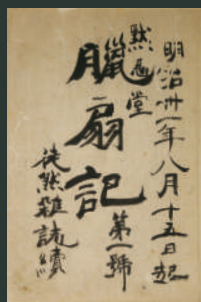 明治卅一年八月十五日起
黙忍堂
臘扇記
第一號
徒然雜誌